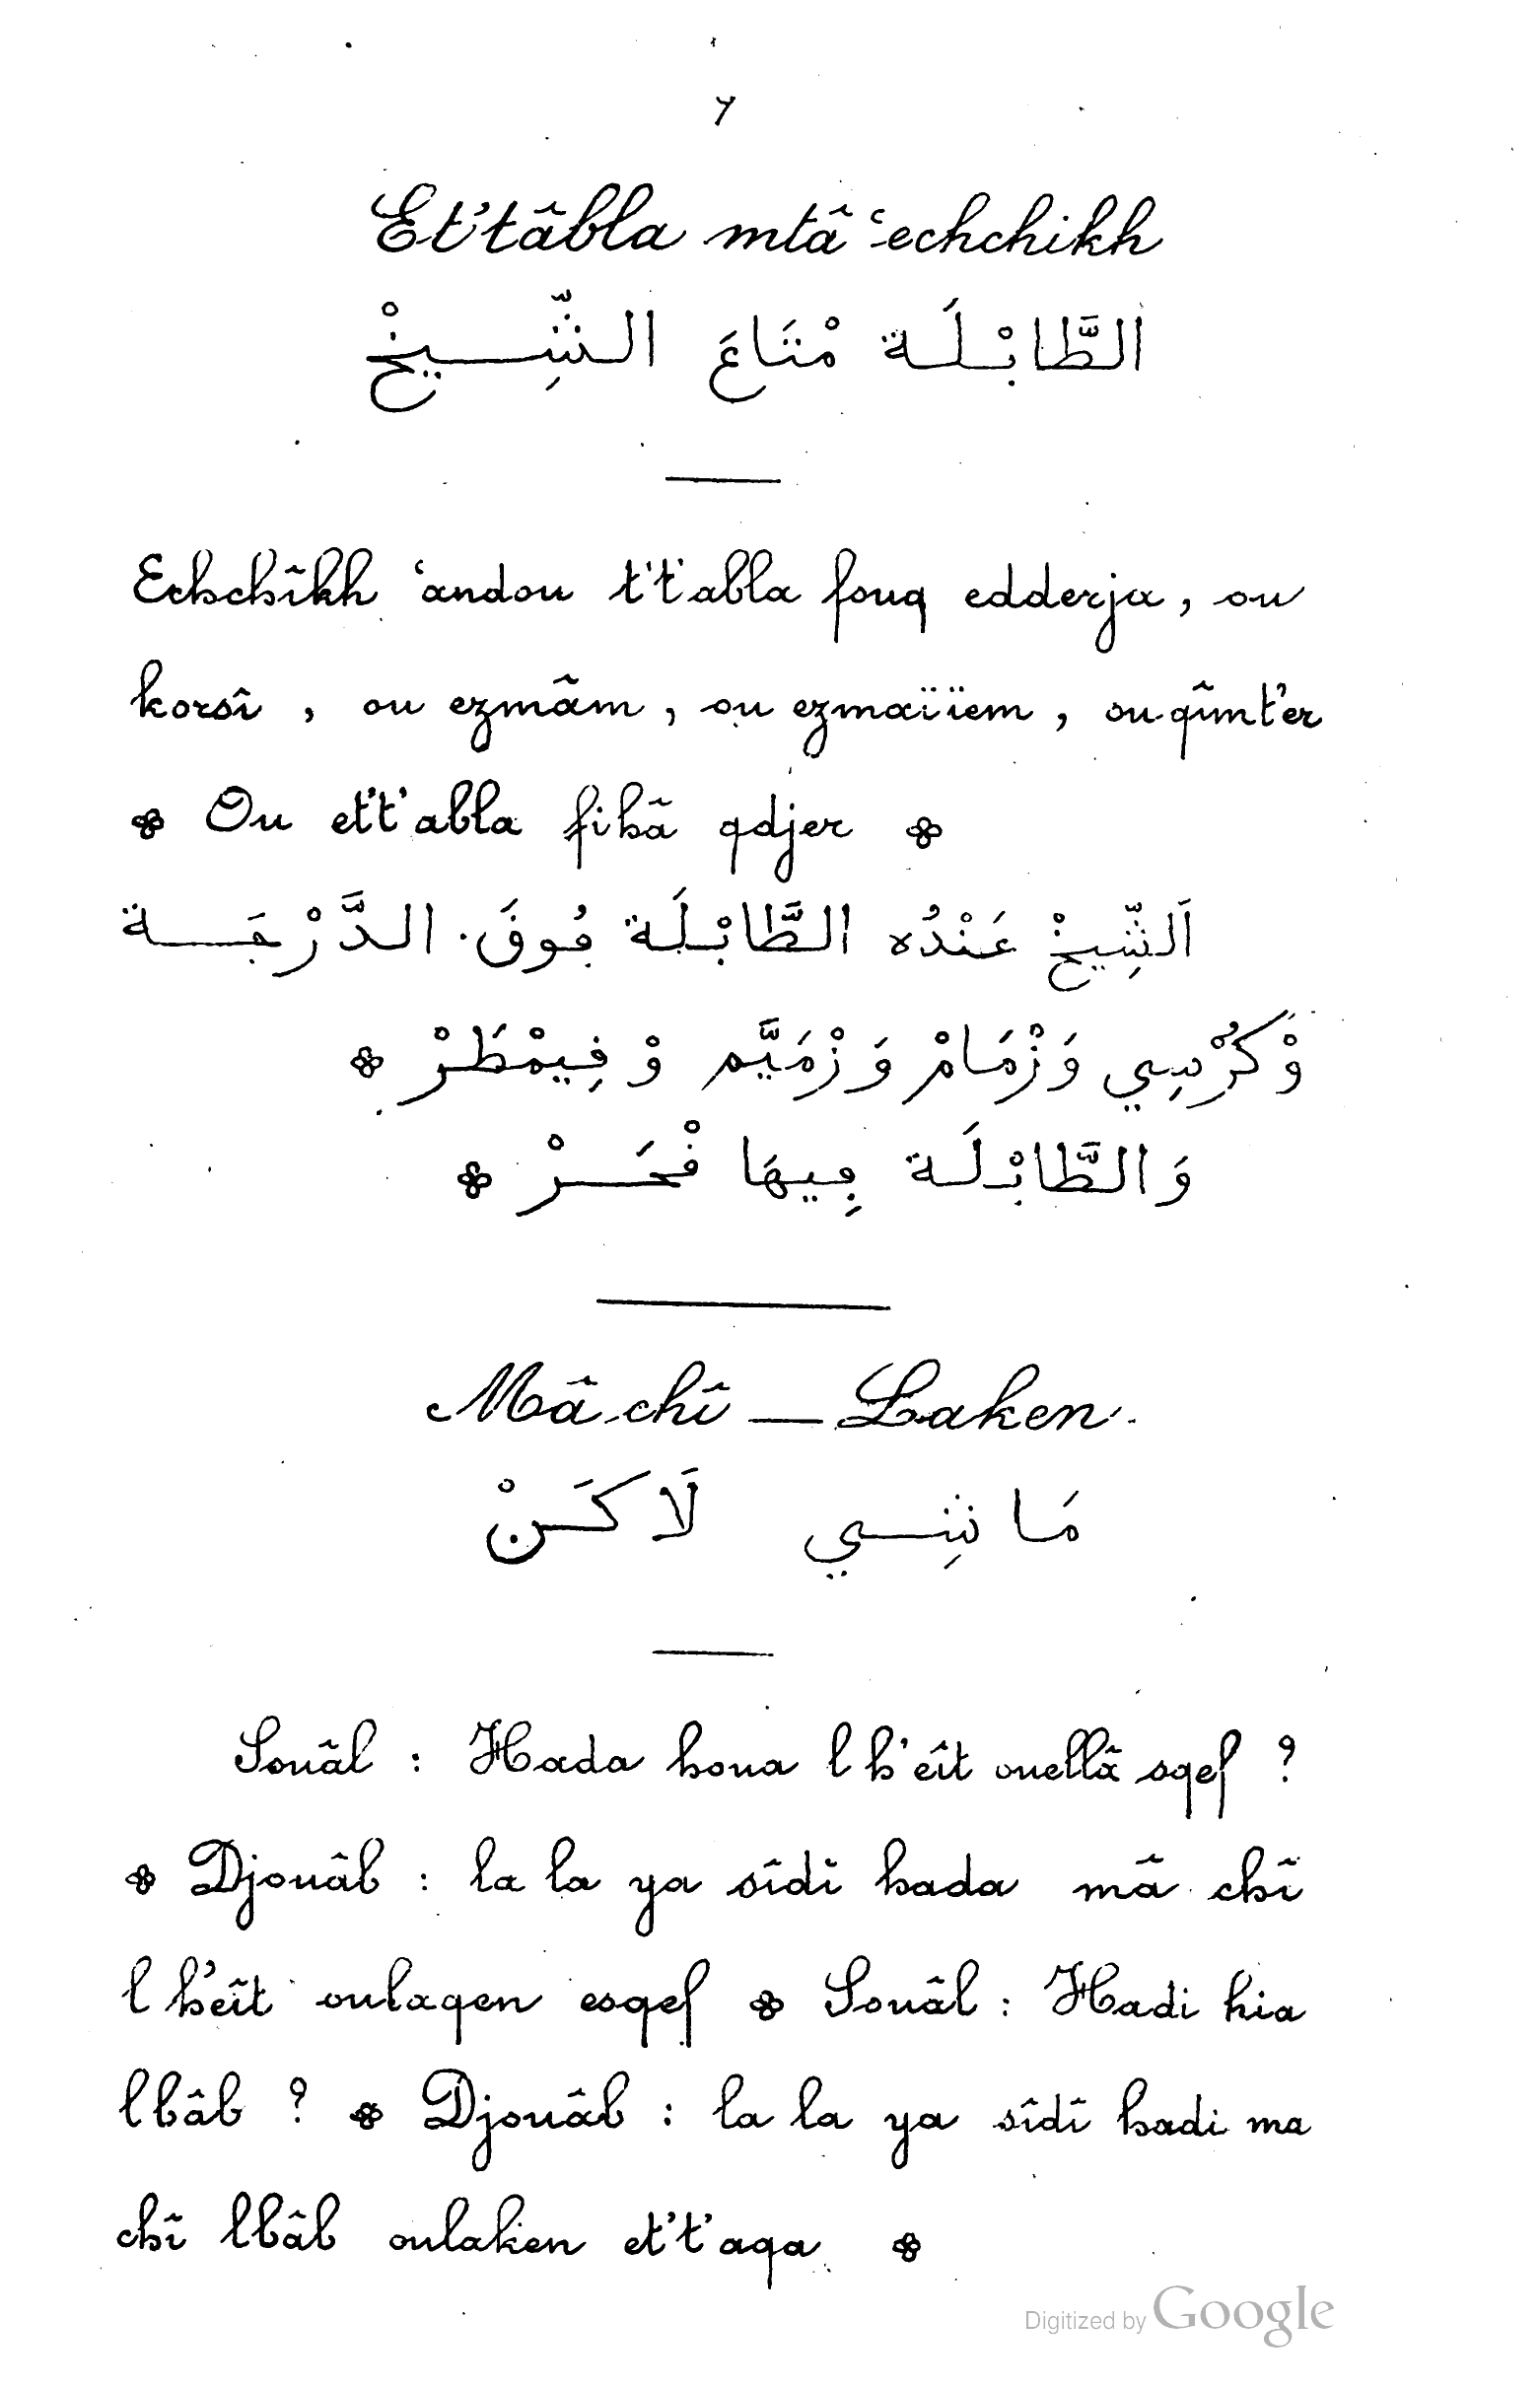 7
Et't'âbla mtâ 'echchikh
الطَّابْلَة مْتَاعَ الشِّيخْ
Echchîkh 'andou t't'abla fouq edderja, ou
korsî , ou ezmâm , ou ezmaïïem , ou qîmt'er
Ou et't'abla fihâ qdjer
اَلشِّيخْ عَنْدُه الطَّابْلَة ڢُوقَ الدَّرْجَة
وْكُرْسِي وَزْمَامْ وَزْمَيَّم وْ فِيمْطَرْ
وَالطَّابْلَة ڢِيهَا فْجَرْ
Mâ chî — Laken
مَا شِي لَاكَنْ
Souâl : Hada houa l h'êît ouellâ sqef ?
Djouâb : la la ya sîdî hada mâ chî
l h'êît oulaqen esqef Souâl : Hadi hia
lbâb ? Djouâb : la la ya sîdî hadi ma
chî lbâb oulaken et't'aqa
Digitized by Google